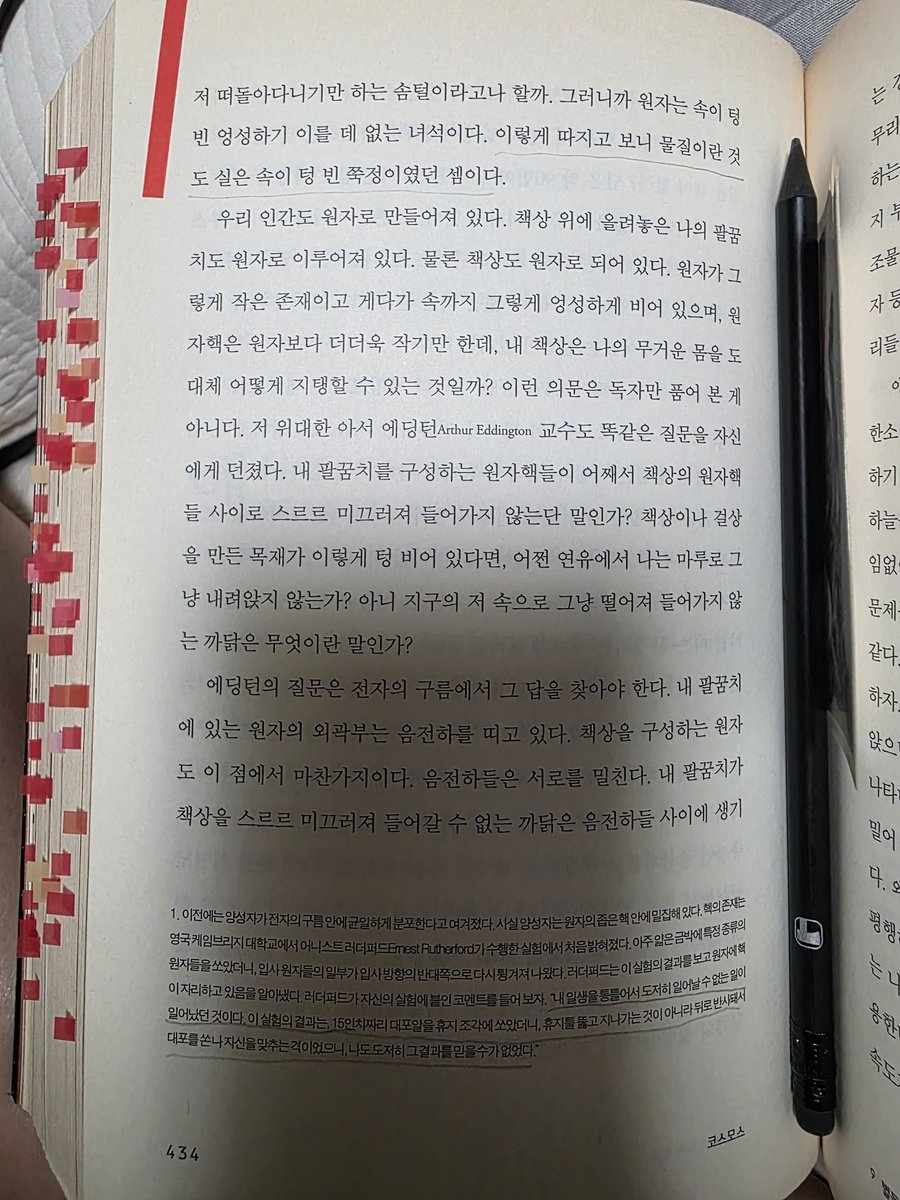 저 떠돌아다니기만 하는 솜털이라고나 할까. 그러니까 원자는 속이 텅
빈 엉성하기 이를 데 없는 녀석이다. 이렇게 따지고 보니 물질이란 것
도 실은 속이 텅 빈 쭉정이였던 셈이다.
우리 인간도 원자로 만들어져 있다. 책상 위에 올려놓은 나의 팔꿈
치도 원자로 이루어져 있다. 물론 책상도 원자로 되어 있다. 원자가 그
렇게 작은 존재이고 게다가 속까지 그렇게 엉성하게 비어 있으며, 원
자핵은 원자보다 더더욱 작기만 한데, 내 책상은 나의 무거운 몸을 도
대체 어떻게 지탱할 수 있는 것일까? 이런 의문은 독자만 품어 본 게
아니다. 저 위대한 아서 에딩턴Arthur Eddington 교수도 똑같은 질문을 자신
에게 던졌다. 내 팔꿈치를 구성하는 원자핵들이 어째서 책상의 원자핵
들 사이로 스르르 미끄러져 들어가지 않는단 말인가? 책상이나 걸상
을 만든 목재가 이렇게 텅 비어 있다면, 어쩐 연유에서 나는 마루로 그
냥 내려앉지 않는가? 아니 지구의 저 속으로 그냥 떨어져 들어가지 않
는 까닭은 무엇이란 말인가?
에딩턴의 질문은 전자의 구름에서 그 답을 찾아야 한다. 내 팔꿈치
에 있는 원자의 외곽부는 음전하를 띠고 있다. 책상을 구성하는 원자
도 이 점에서 마찬가지이다. 음전하들은 서로를 밀친다. 내 팔꿈치가
책상을 스르르 미끄러져 들어갈 수 없는 까닭은 음전하들 사이에 생기
1. 이전에는 양성자가 전자의 구름 안에 균일하게 분포한다고 여겨졌다. 사실 양성자는 원자의 좁은 핵 안에 밀집해 있다. 핵의 존재는
영국 케임브리지 대학교에서 어니스트 러더퍼드Ernest Rutherford가 수행한 실험에서 처음 밝혀졌다. 아주 얇은 금박에 특정 종류의
원자들을 쏘았더니, 입사 원자들의 일부가 입사 방향의 반대쪽으로 다시 튕겨져 나왔다. 러더퍼드는 이 실험의 결과를 보고 원자에 핵
이 자리하고 있음을 알아냈다. 러더퍼드가 자신의 실험에 붙인 코멘트를 들어 보자. "내 일생을 통틀어서 도저히 일어날 수 없는 일이
일어났던 것이다. 이 실험의 결과는, 15인치짜리 대포알을 휴지 조각에 쏘았더니, 휴지를 뚫고 지나가는 것이 아니라 뒤로 반사돼서
대포를 쏜 나 자신을 맞추는 격이었으니, 나도 도저히 그 결과를 믿을 수가 없었다."
434
코스모스
는
무리
하는
지
조물
자 등
리들
한소
하기
하늘
임없
문제
같다.
하자.
앉으
나타
밀어
다.
평행
는 나
용한
속도
9